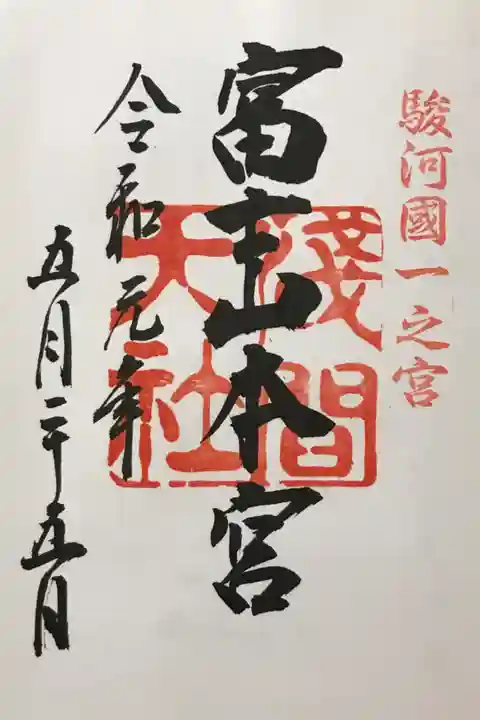 駿河國一之宮
富士山本宮
淺間大社
令和元年
五月二十五日